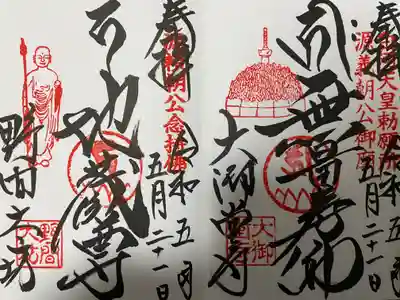 奉拝
天皇勅願所
源義朝公御廟
令和五年
五月二十一日
大御堂寺
大御堂寺
奉拝
源頼朝公念持佛
令和五年
五月二十一日
地蔵尊
野間大坊
野間大坊